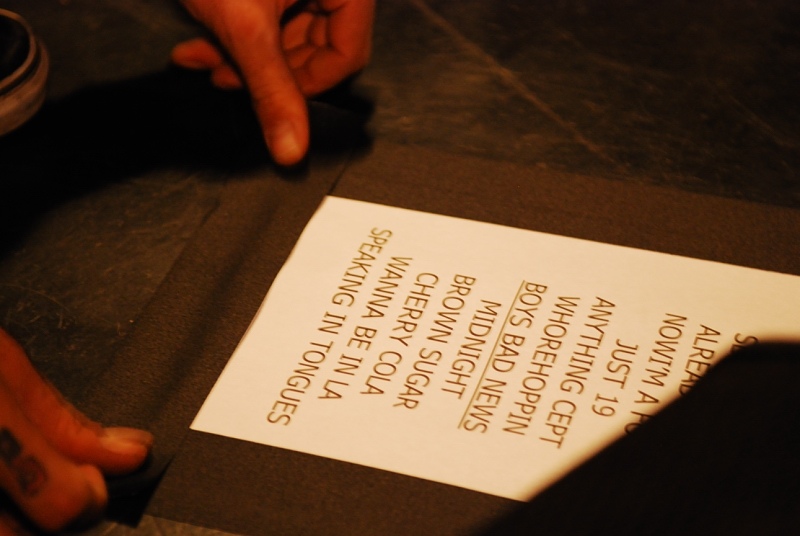 NOWI'M A
JUST 19
ANYTHING CEPT
WHOREHOPPIN
BOYS BAD NEWS
MIDNIGHT
BROWN SUGAR
CHERRY COLA
WANNA BE IN LA
SPEAKING IN TONGUES